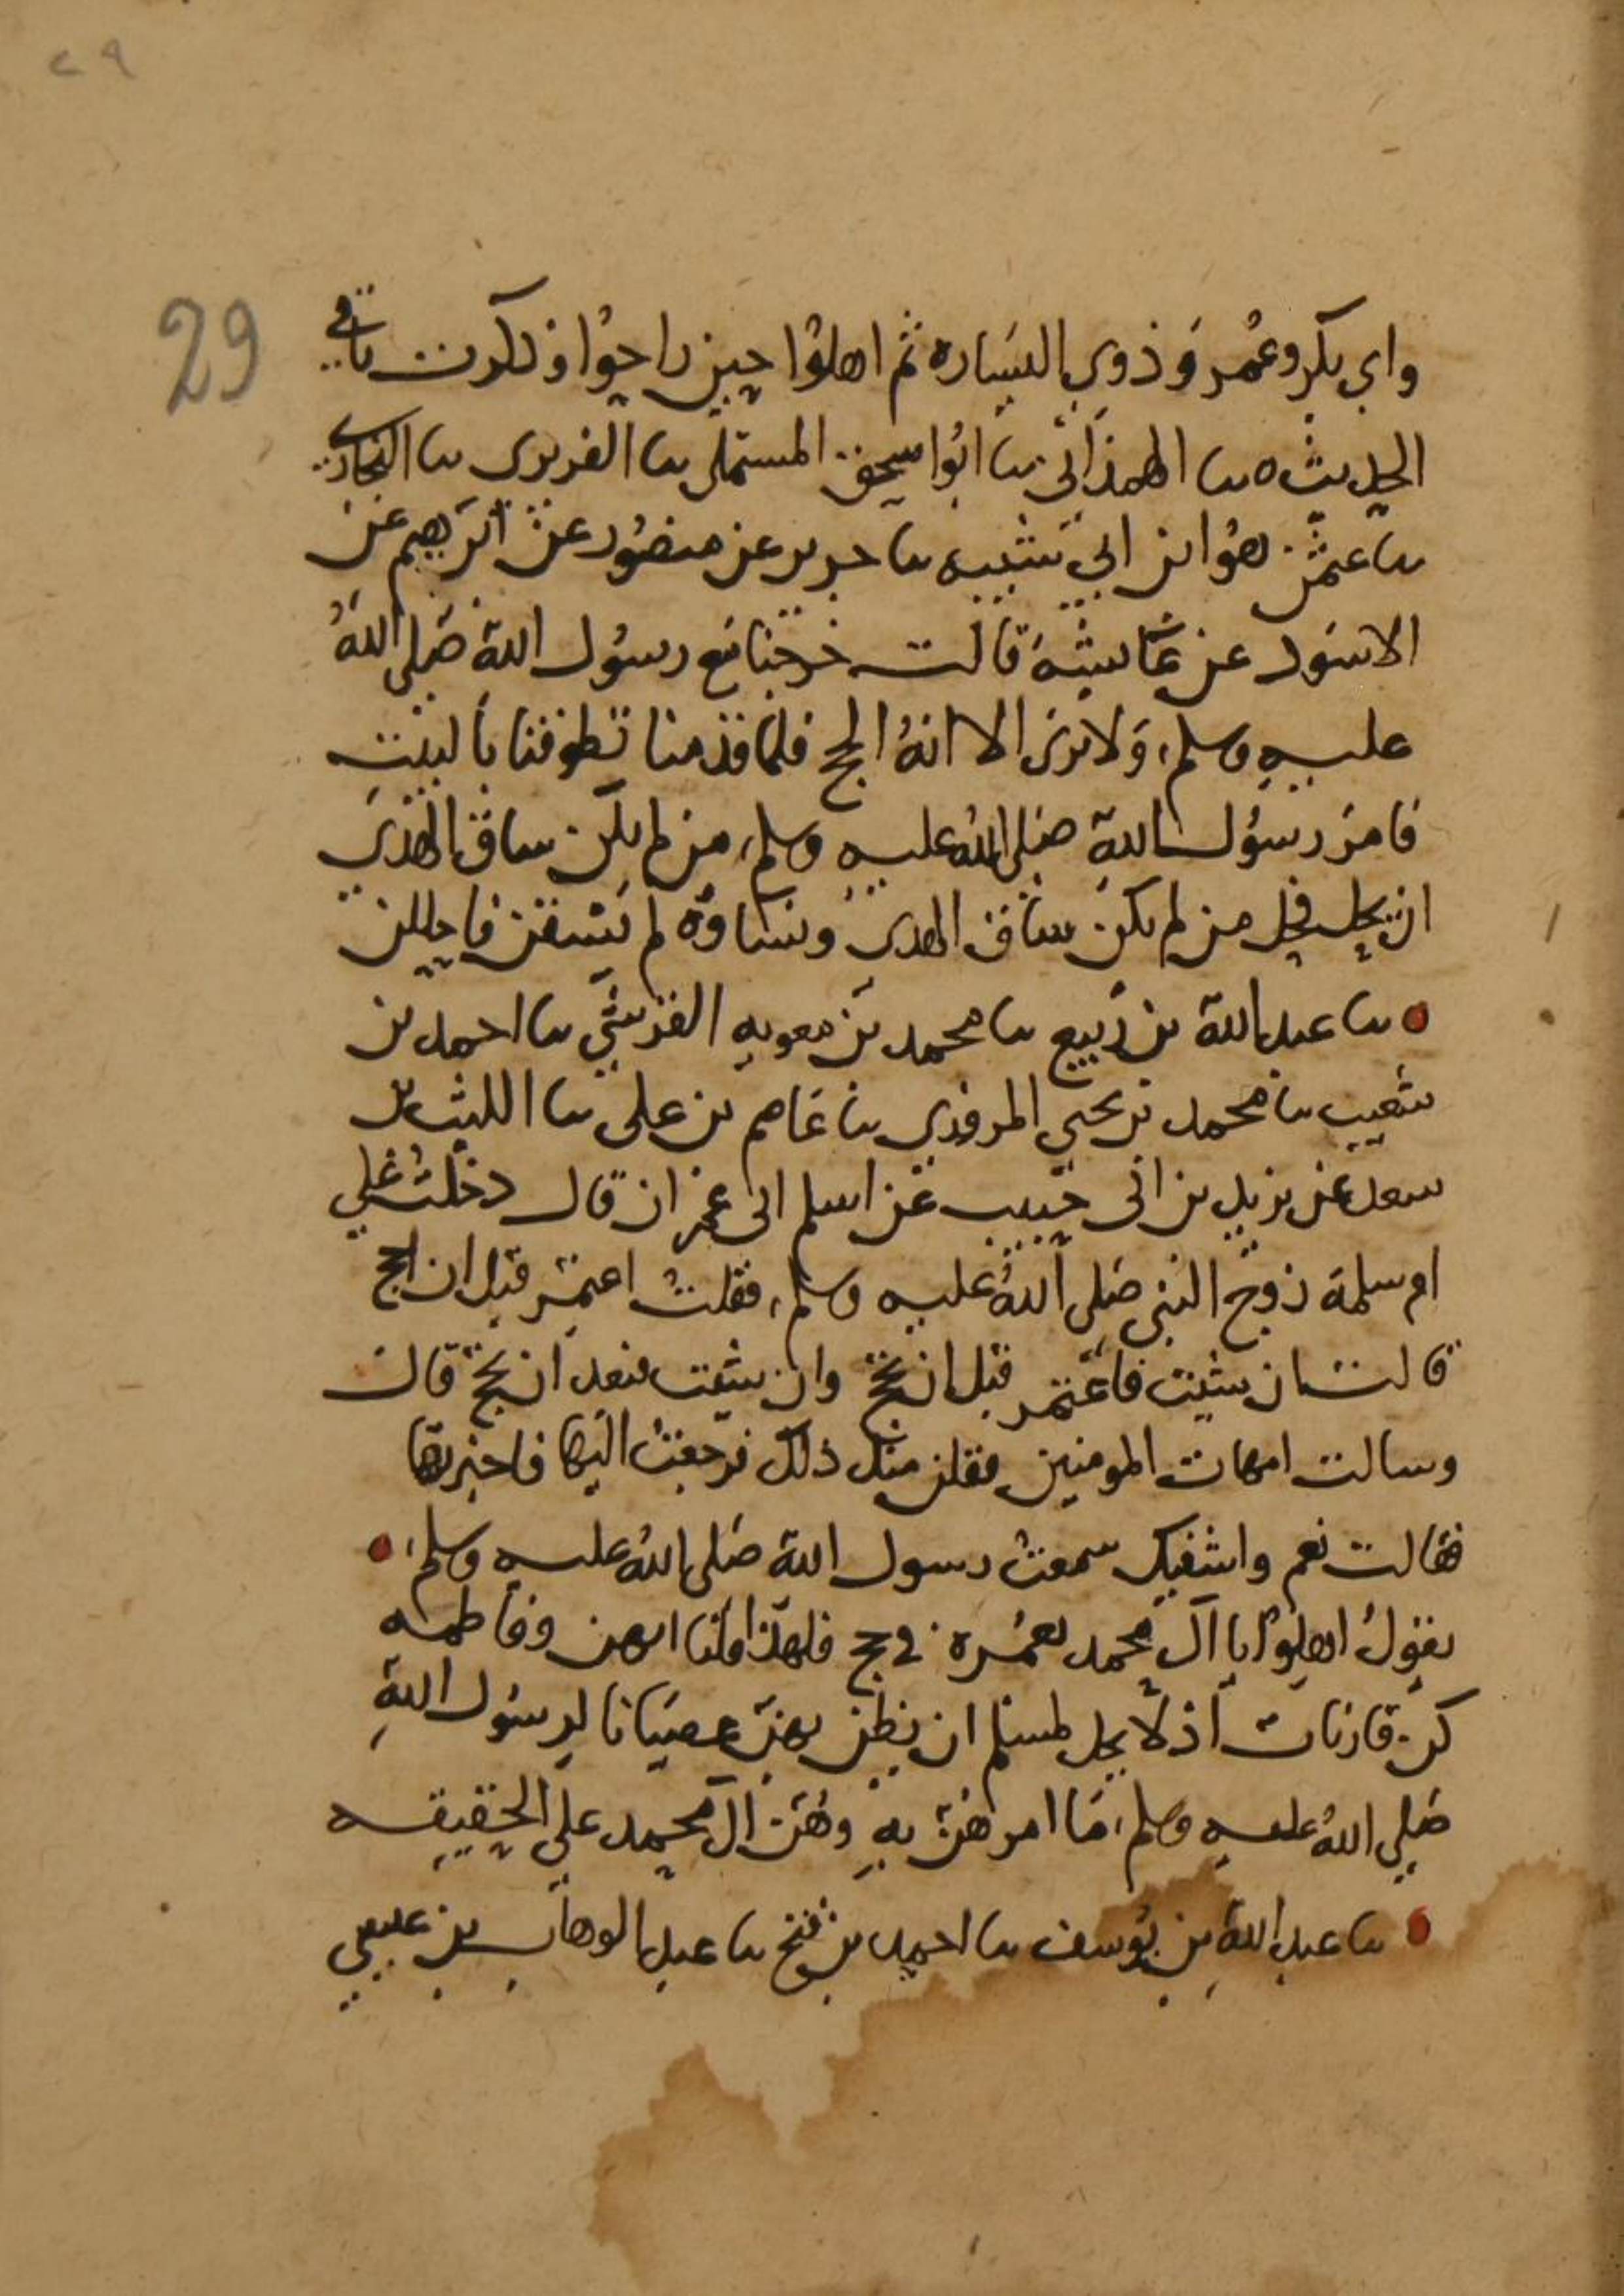 ٢٩
29
وابي بكر وعمر وذوي اليساره ثم اهلوا حين راحوا وذكرت باقي
الحديث ه نا الهمذاني نا ابو اسحق المستملي نا الفربري نا البخاري
نا عثمن هو ابن ابي شيبه نا جرير عن منصور عن ابرهيم عن
الاسود عن عايشه قالت خرجنا مع رسول الله صلى الله
عليه وسلم، ولا نرى الا انه الحج فلما قدمنا تطوفنا بالبيت
فامر رسول الله صلى الله عليه وسلم، من لم يكن ساق الهدي
ان يحل فحل من لم يكن ساق الهدي ونساؤه لم يسقن فاحللن
نا عبد الله بن ربيع نا محمد بن معويه القرشي نا احمد بن
شعيب نا محمد بن يحيى المروزي نا عاصم بن علي نا الليث بن
سعد عن يزيد بن ابي حبيب عن اسلم ابي عمران قال دخلت علي
ام سلمة زوج النبي صلى الله عليه وسلم، فقلت اعتمر قبل ان احج
قالت ان شيت فاعتمر قبل ان تحج وان شيت فبعد ان تحج قال
وسالت امهات المومنين فقلن مثل ذلك فرجعت اليها فاخبرتها
فقالت نعم واشفيك سمعت رسول الله صلى الله عليه وسلم،
يقول اهلوا يا آل محمد بعمره في حج فلهذا قلنا انهن وفاطمه
كن قارنات اذ لا يحل لمسلم ان يظن بهن عصيانا لرسول الله
صلى الله عليه وسلم، ما امرهن به وهن آل محمد على الحقيقه
نا عبد الله بن يوسف نا احمد بن فتح نا عبد الوهاب بن عيسى